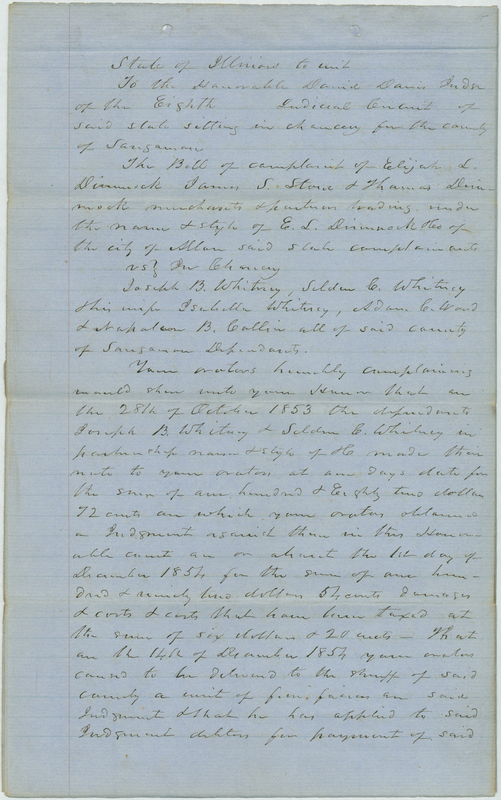 State of Illinois to wit
To the Honorable David Davis Judge
of the Eighth Judicial Circuit of
said state setting in chancery for the county
of Sangamon
The Bill of complaint of Elijah L.
Dimmock James S. Stone & Thomas Dim
mock merchants & partners trading under
the name & style of E. L. Dimmock & Co of
the city of Alton said state complainants
vs} In Chancery
Joseph B. Whitney, Selden C. Whitney
& his wife Isabella Whitney, Adam C. Wood
& Napoleon B. Collin all of said county
of Sangamon Defendants.
Your orators humbly complaining
would shew unto your Honor that on
the 28th of October 1853 the defendants
Joseph B. Whitney & Selden C. Whitney in
partnership name & style of made their
note to your orators at one days date for
the sum of one hundred & Eighty two dollars
72 cents on which your orators obtained
a Judgment against them in this Honor-
able court on or about the 1st day of
December 1854 for the sum of one hun-
dred & ninety two dollars 54 cents damages
& costs & costs that have been taxed at
the sum of six dollars & 20 cents - That
on the 14th of December 1854 your orators
caused to be delivered to the sheriff of said
county a writ of fieri facias on said
Judgment & that he has applied to said
Judgment debtors for payment of said